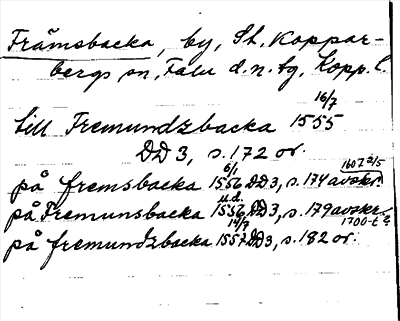 Främsbacka, by, St. Koppar-
bergs sn, Falu d.n. tg, Kopp. l.
till Fremundzbacka 16/7 1555
DD 3, s. 172 or.
på fremsbacka 6/1 1556 DD 3, s. 174 avskr. 1607 2/5
på Fremunsbacka u.d. 1556 DD 3, s. 179 avskr. 1700-t.?
på fremundzbacka 14/7 1557 DD 3, s. 182 or.